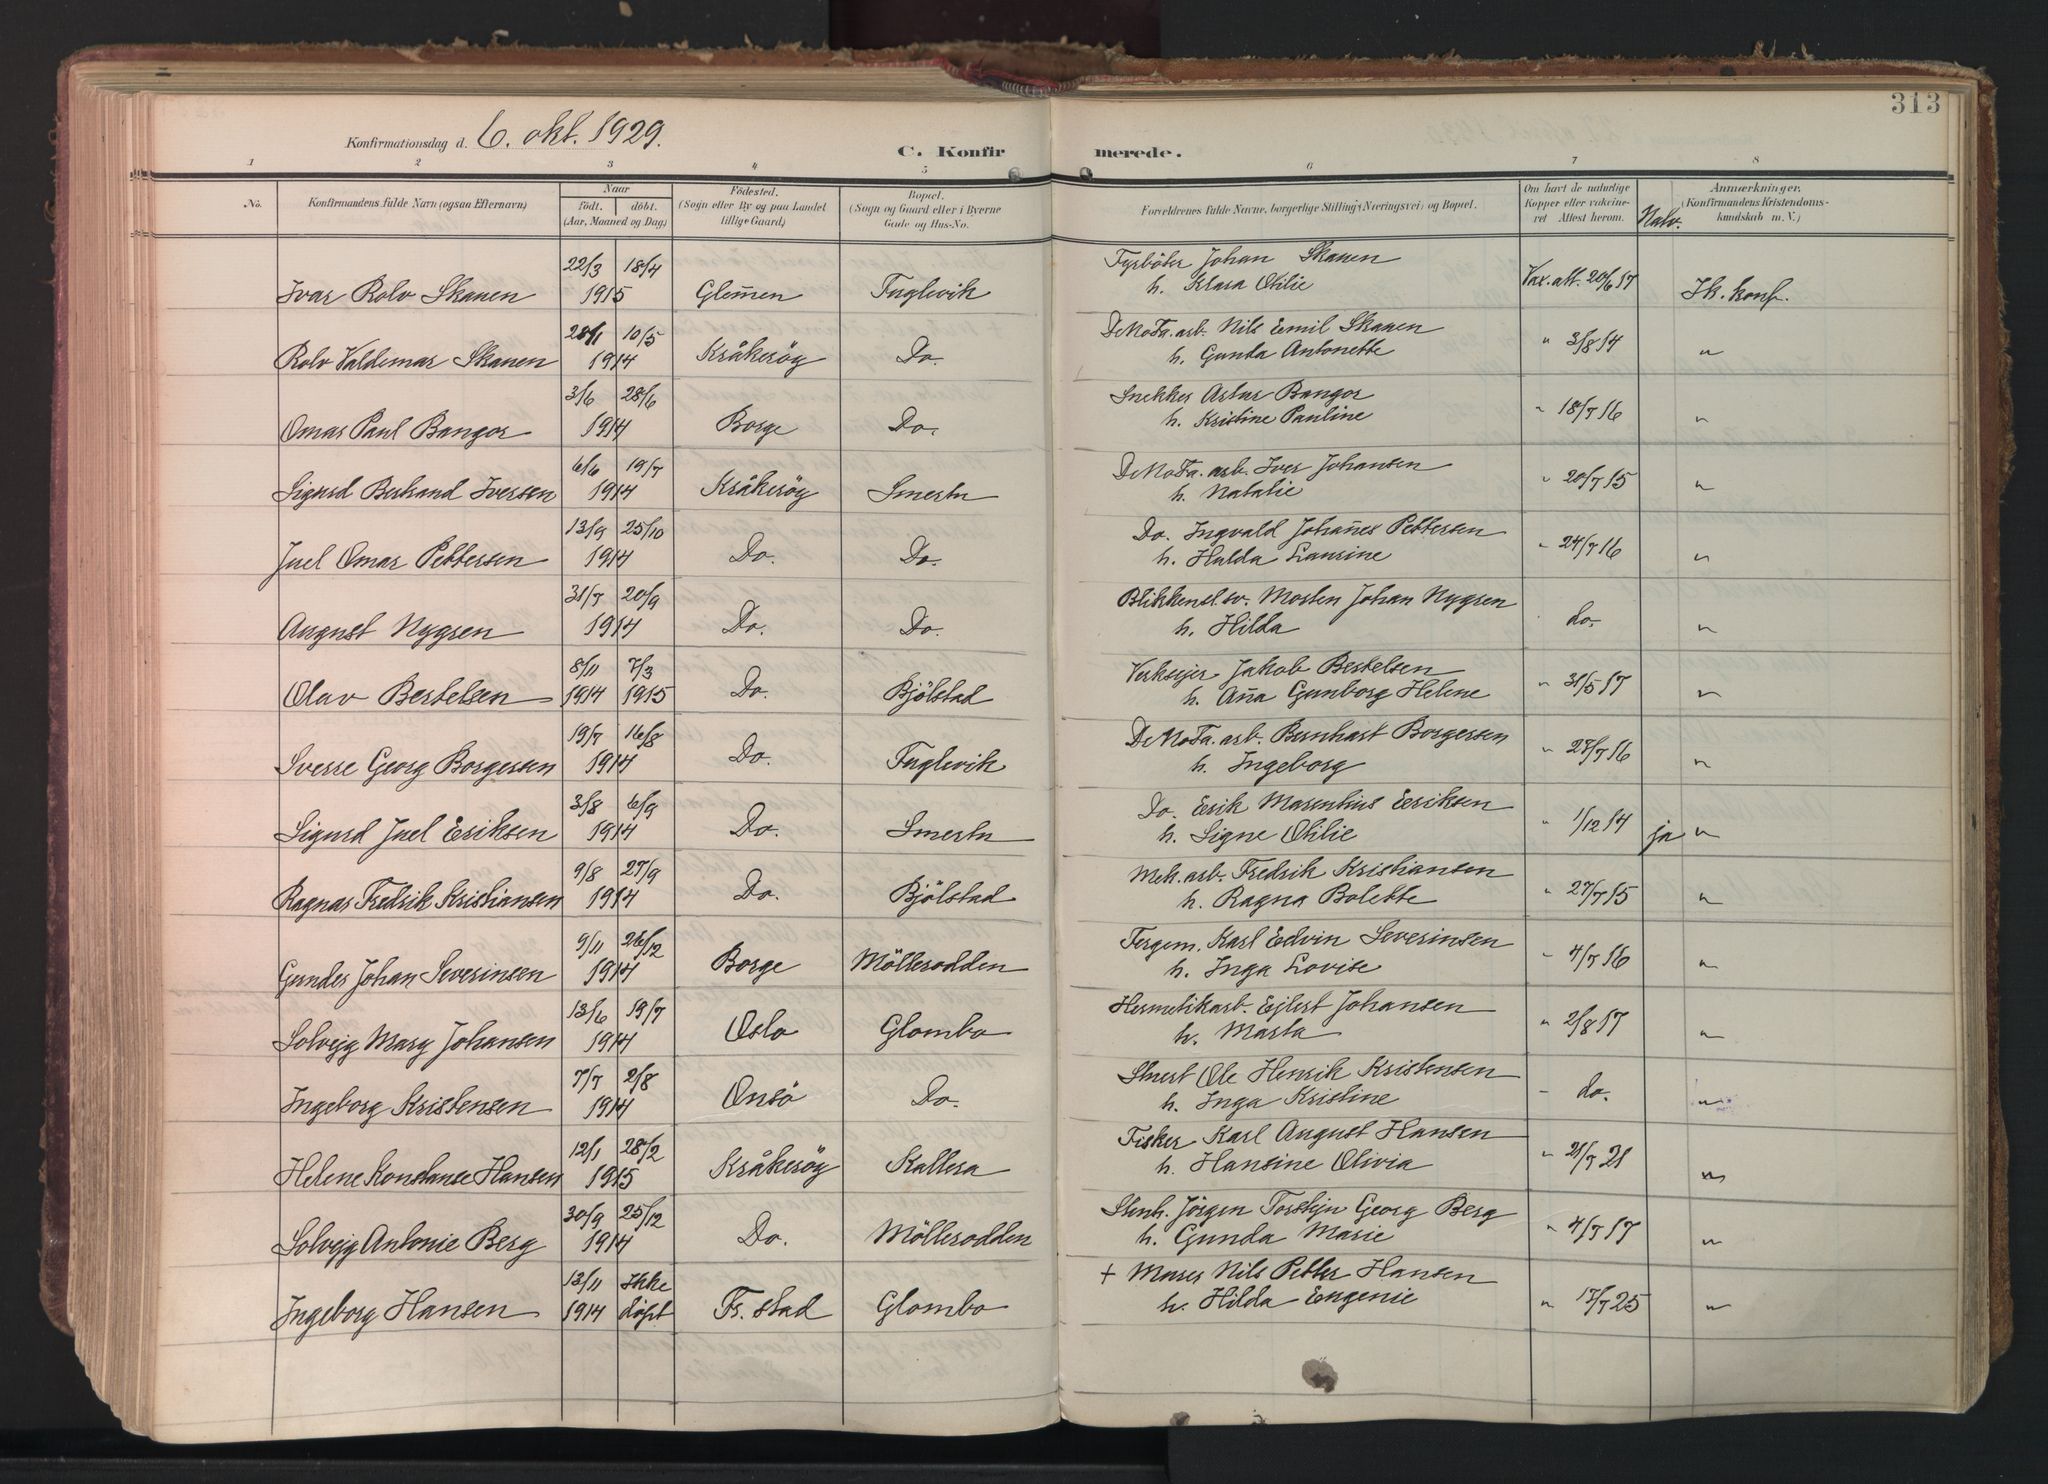 313
Konfirmationsdag d. 6. okt. 1929.
C. Konfirmerede.
1 2 3 4 5 6 7 8
No. Konfirmandens fulde Navn (ogsaa Efternavn) Naar født. døbt. (Aar, Maaned og Dag) Fødested. (Sogn eller By og paa Landet tillige Gaard) Bopæl. (Sogn og Gaard eller i Byerne Gade og Hus-No. Forældrenes fulde Navne, borgerlige Stilling (Næringsvei) og Bopæl. Om havt de naturlige Kopper eller vakcineret Attest herom. Anmærkninger. (Konfirmandens Kristendomskundskab m. V.)
22/3 18/4 Fyrböter Johan Skauen
Ivar Rolv Skauen 1915 Glem̄en Fuglevik h. Klara Otilie Vax. att. 20/6 17 Ik. konf.
28/1 10/5 DeNoFa. arb. Nils Emil Skauen
Rolv Valdemar Skauen 1914 Kråkeröy Do. h. Gunda Antonette " 3/8 14 "
3/6 28/6 Snekker Artur Bangor
Omar Paul Bangor 1914 Borge Do. h. Kristine Pauline " 18/7 16 "
6/6 19/7 DeNoFa. arb. Iver Johansen
Sigurd Bertrand Iversen 1914 Kråkeröy Smertu h. Natalie " 20/7 15 "
13/9 25/10 Do. Ingvald Johan̄es Pettersen
Juel Omar Pettersen 1914 Do. Do. h. Hulda Laurine " 24/7 16 "
31/7 20/9 Blikkensl. sv. Morten Johan Nygren
August Nygren 1914 Do. Do. h. Hilda do. "
8/11 7/3 Verksejer Jakob Bertelsen
Olav Bertelsen 1914 1915 Do. Bjölstad h. An̄a Gunborg Helene " 31/5 17 "
19/7 16/8 DeNoFa. arb. Bernhart Borgersen
Sverre Georg Borgersen 1914 Do. Fuglevik h. Ingeborg " 27/7 16 "
3/8 6/9 Do. Erik Marentius Eriksen
Sigurd Juel Eriksen 1914 Do. Smertu h. Signe Otilie " 1/12 14 ja "
9/8 27/9 Mek. arb. Fredrik Kristiansen
Ragnar Fredrik Kristiansen 1914 Do. Bjölstad h. Ragna Bolette " 27/7 15 "
9/11 26/12 Fergem. Karl Edvin Severinsen
Gunder Johan Severinsen 1914 Borge Möllerodden h. Inga Lovise " 4/7 16 "
13/6 19/7 Hermetikarb. Ejlert Johansen
Solvejg Mary Johansen 1914 Oslo Glombo h. Marta " 2/8 17 "
7/7 2/8 Ole Henrik Kristensen
Ingeborg Kristensen 1914 Onsö Do. h. Inga Kristine - do. "
12/1 28/2 Fisker Karl August Hansen
Helene Konstanse Hansen 1915 Kråkeröy Kallera h. Hansine Olivia " 21/7 21 "
30/9 25/12 Stenh. Jörgen Torstejn Georg Berg
Solvejg Antonie Berg 1914 Do. Möllerodden h. Gunda Marie " 4/7 17 "
13/11 Ikke + Murer Nils Petter Hansen
Ingeborg Hansen 1914 döpt Fr. stad Glombo h. Hilda Eugenie " 17/7 25 "